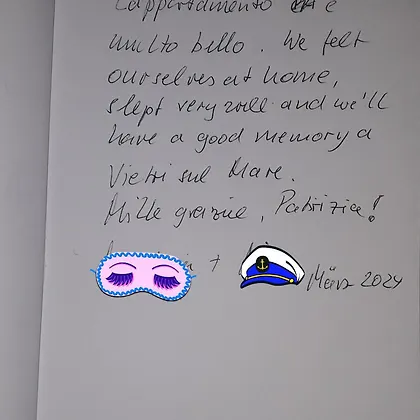 L'appartamento è
multo bello. We felt
ourselves at home,
slept very well and we'll
have a good memory a
Vietri sul Mare.
Mille grazie, Patrizia!
+
März 2024